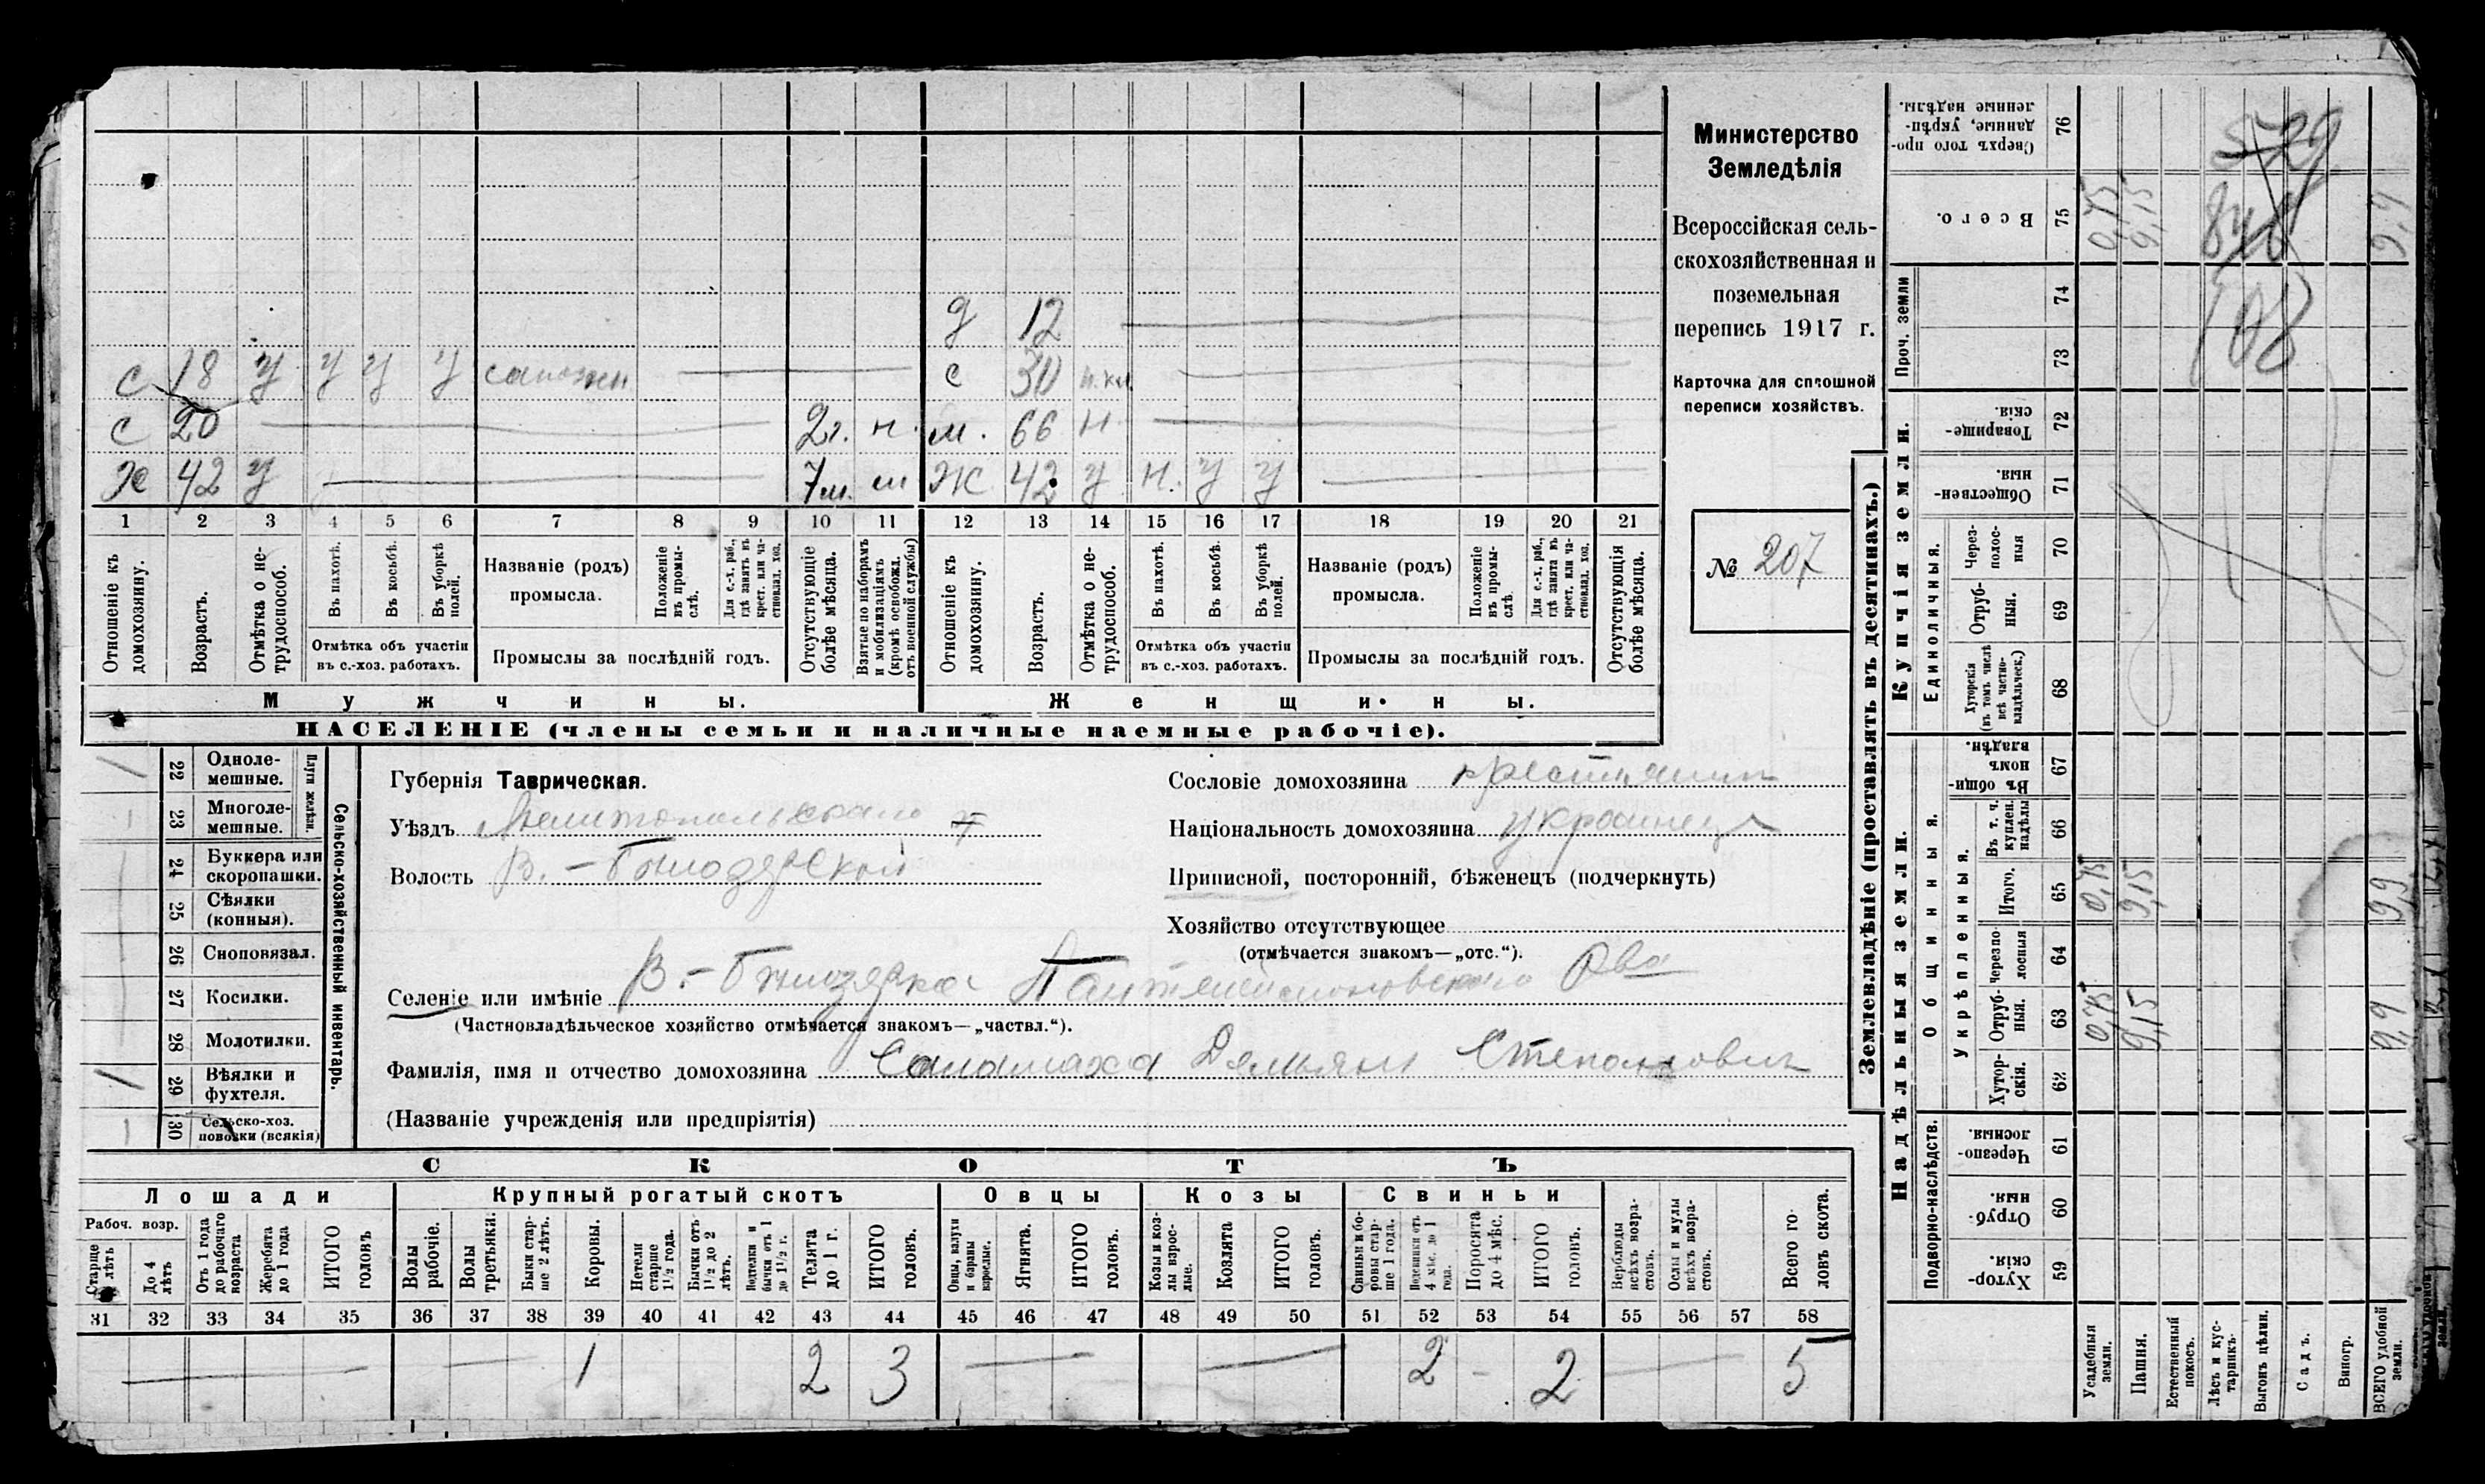 Министерство
Земледѣлія
Всероссійская сель-
скохозяйственная и
поземельная
перепись 1917 г.
Карточка для сплошной
переписи хозяйствъ.
№ 207
д 12
с 18 у у у у сапожн с 30
с 20 2г. н. м. 66 н
Х 42 у 7м. м Ж 42 у н. у у
1 2 3 4 5 6 7 8 9 10 11 12 13 14 15 16 17 18 19 20 21
Отношеніе къ домохозяину.
Возрастъ.
Отмѣтка о не-трудоспособ.
Въ пахотѣ.
Въ косьбѣ.
Въ уборкѣ полей.
Отмѣтка объ участіи
въ с.-хоз. работахъ.
Названіе (родъ)
промысла.
Положеніе въ промы-слѣ.
Для с.-х. раб., гдѣ занятъ въ крест. или ча-стновлад. хоз.
Промыслы за послѣдній годъ.
Отсутствующіе болѣе мѣсяца.
Взятые по наборамъ и мобилизаціямъ (кромѣ освобожд. отъ военной службы)
Отношеніе къ домохозяину.
Возрастъ.
Отмѣтка о не-трудоспособ.
Въ пахотѣ.
Въ косьбѣ.
Въ уборкѣ полей.
Отмѣтка объ участіи
въ с.-хоз. работахъ.
Названіе (родъ)
промысла.
Положеніе въ промы-слѣ.
Для с.-х. раб., гдѣ занята въ крест. или ча-стновлад. хоз.
Промыслы за послѣдній годъ.
Отсутствующія болѣе мѣсяца.
Мужчины. Женщины.
НАСЕЛЕНІЕ (члены семьи и наличные наемные рабочіе).
22 Одноле-мешные.
23 Многоле-мешные.
Плуги желѣзн.
24 Буккера или скоропашки.
25 Сѣялки (конныя).
26 Сноповязал.
27 Косилки.
28 Молотилки.
29 Вѣялки и фухтеля.
30 Сельско-хоз. повозки (всякія)
Сельско-хозяйственный инвентарь.
Губернія Таврическая.
Уѣздъ Мелитопольскаго
Волость В.-Бѣлозерской
Сословіе домохозяина крестьянинъ
Національность домохозяина украинецъ
Приписной, посторонній, бѣженецъ (подчеркнуть)
Хозяйство отсутствующее
(отмѣчается знакомъ—„отс.“).
Селеніе или имѣніе В.-Бѣлозерка Пантелеймоновскаго Ова
(Частновладѣльческое хозяйство отмѣчается знакомъ—„частвл.“).
Фамилія, имя и отчество домохозяина Саламаха Демьянъ Степановичъ
(Названіе учрежденія или предпріятія)
СКОТЪ
Лошади Крупный рогатый скотъ Овцы Козы Свиньи
Рабоч. возр.
Старше 4 лѣтъ
До 4 лѣтъ
Отъ 1 года до рабочаго возраста
Жеребята до 1 года
ИТОГО головъ
Волы рабочіе.
Волы третьяки.
Быки стар-ше 2 лѣтъ.
Коровы.
Нетели старше 1½ года.
Бычки отъ 1½ до 2 лѣтъ.
Подтелки и бычки отъ 1 до 1½ г.
Телята до 1 г.
ИТОГО головъ.
Овцы, валухи и бараны взрослые.
Ягнята.
ИТОГО головъ.
Козы и коз-лы взрос-лые.
Козлята
ИТОГО головъ.
Свиньи и бо-ровы стар-ше 1 года.
Подсвинки отъ 4 мѣс. до 1 года.
Поросята до 4 мѣс.
ИТОГО головъ.
Верблюды всѣхъ возра-стовъ.
Ослы и мулы всѣхъ возра-стовъ.
Всего го-ловъ скота.
31 32 33 34 35 36 37 38 39 40 41 42 43 44 45 46 47 48 49 50 51 52 53 54 55 56 57 58
1 2 3 2 - 2 5
Землевладѣніе (проставлять въ десятинахъ.)
Купчія земли.
Надѣльныя земли.
Проч. земли
Единоличныя.
Общинныя.
Укрѣпленныя.
Подворно-наслѣдств.
76 Сверхъ того про-данные, укрѣп-ленные надѣлы.
75 Всего. 0,75 9,15 9,9
74
73
72 Товарище-скія.
71 Обществен-ныя
70 Через-полос-ныя
69 Отруб-ныя.
68 Хуторскія (въ томъ числѣ всѣ частно-владѣльческ.)
67 Въ общин-номъ владѣн.
66 Въ т. ч. куплен. надѣлы
65 Итого. 0,75 9,15 9,9
64 Черезпо-лосныя
63 Отруб-ныя. 0,75 9,15 9,9
62 Хутор-скія.
61 Черезпо-лосныя.
60 Отруб-ныя.
59 Хутор-скія.
Усадебныя земли.
Пашня.
Естественный покосъ.
Лѣсъ и кус-тарникъ.
Выгонъ цѣлин.
Садъ.
Виногр.
ВСЕГО удобной земли.
529
108